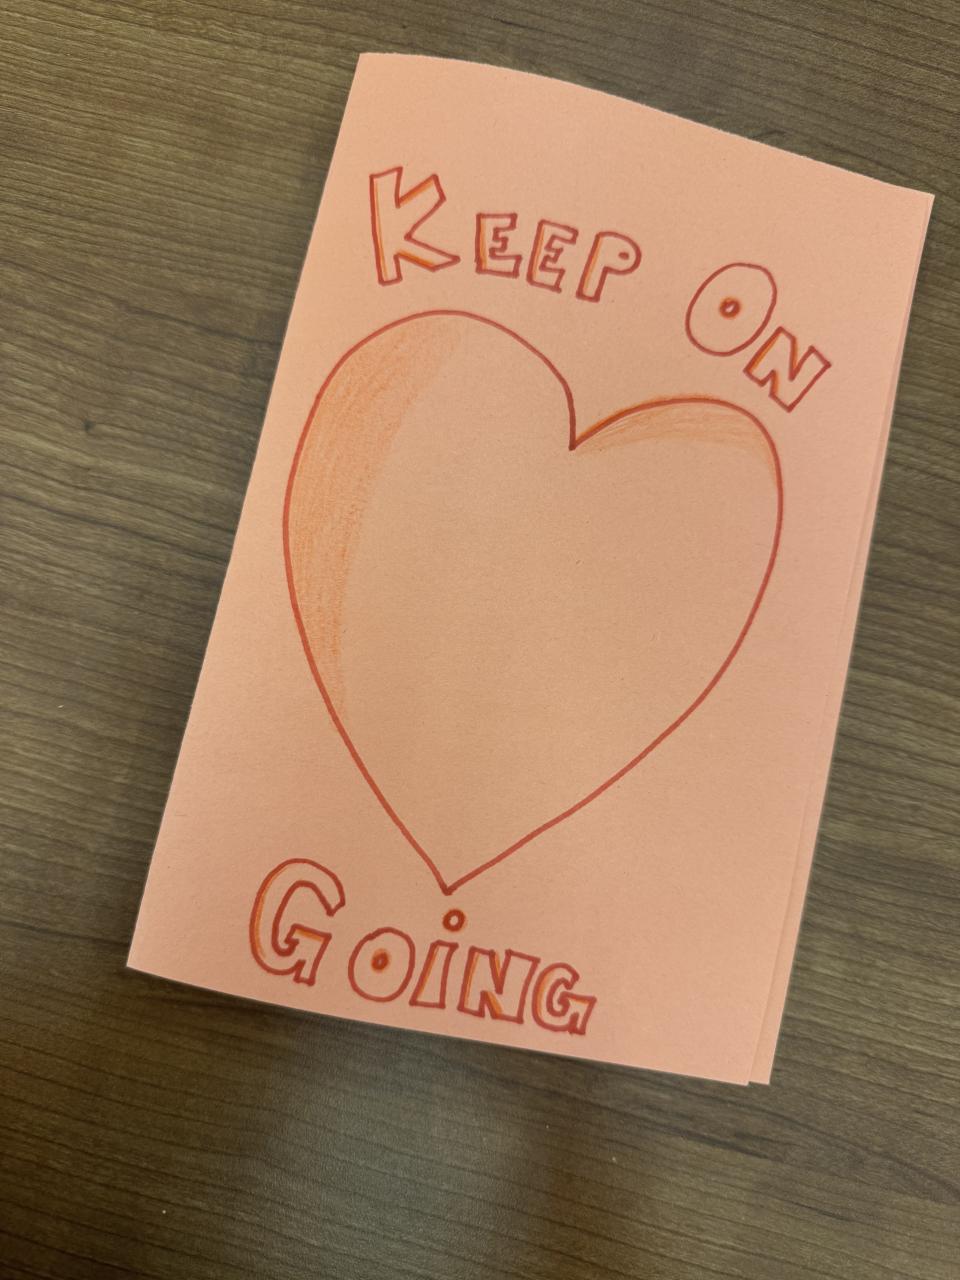 KEEP ON
GOiNG